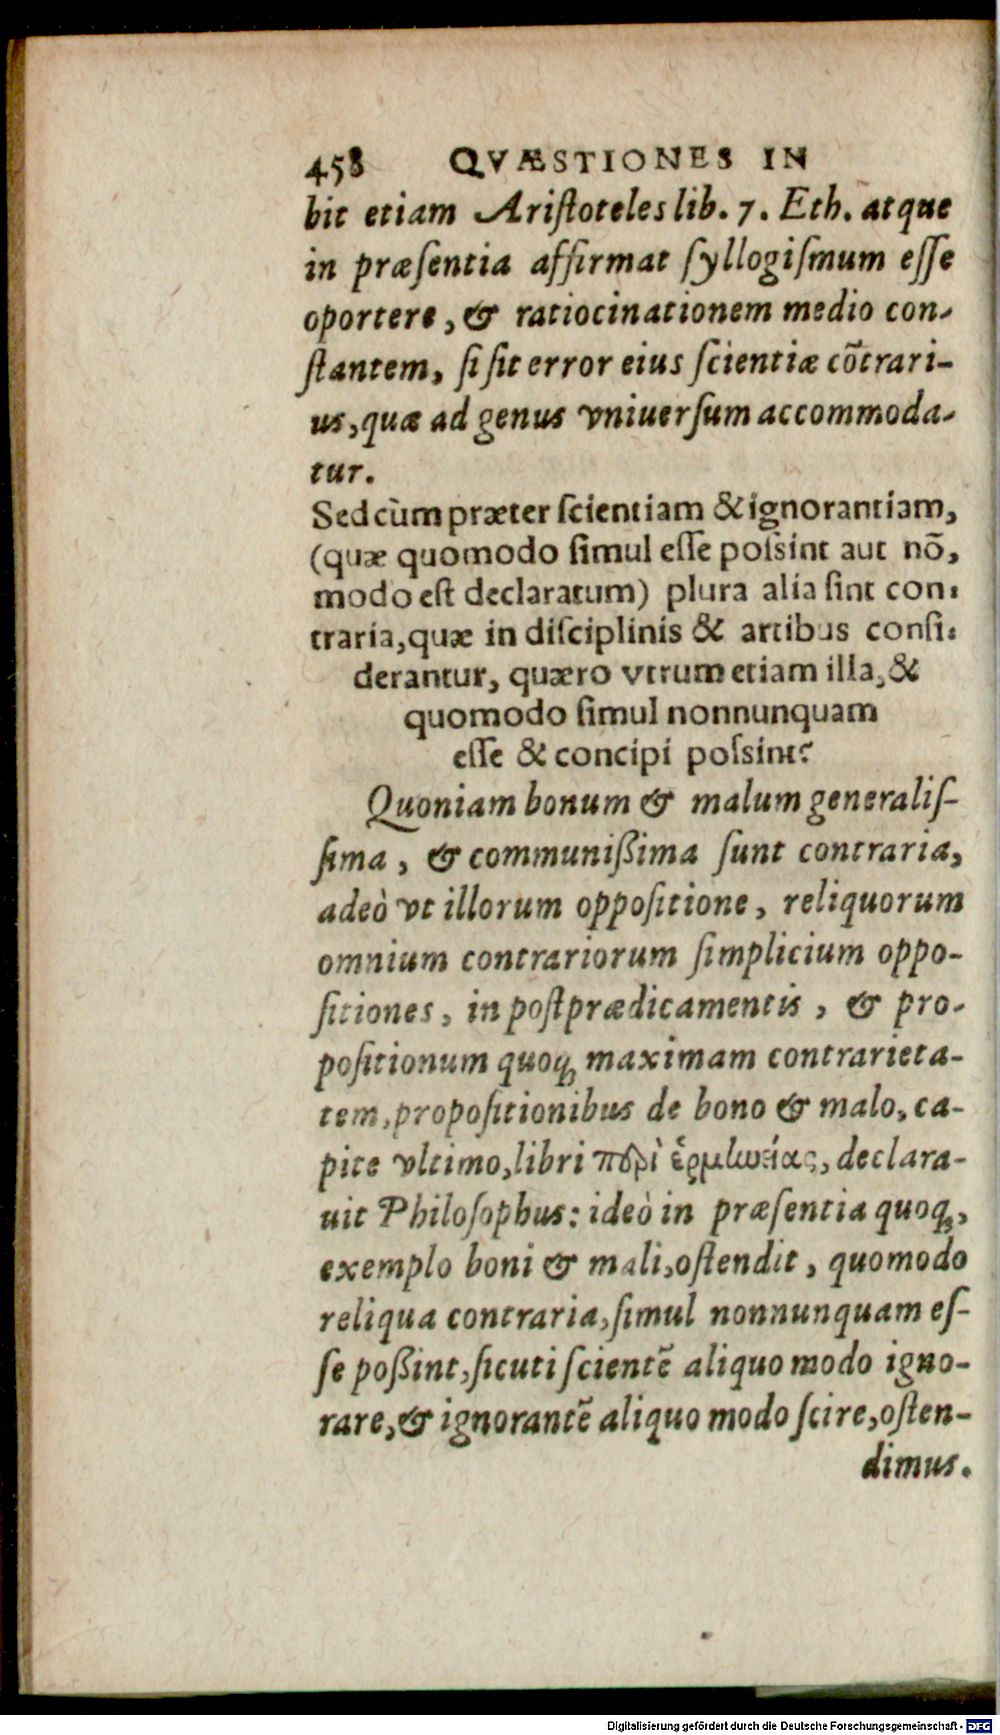 458 QVÆSTIONES IN
bit etiam Ariſtoteles lib. 7. Eth. atque
in præſentia affirmat ſyllogiſmum eſſe
oportere, & ratiocinationem medio con-
ſtantem, ſi ſit error eius ſcientiæ cõtrari-
us, quæ ad genus vniuerſum accommoda-
tur.
Sed cùm præter ſcientiam & ignorantiam,
(quæ quomodo ſimul eſſe poſsint aut nõ,
modo eſt declaratum) plura alia ſint con-
traria, quæ in diſciplinis & artibus conſi-
derantur, quæro vtrum etiam illa, &
quomodo ſimul nonnunquam
eſſe & concipi poſsint?
Quoniam bonum & malum generaliſ-
ſima, & communißima ſunt contraria,
adeò vt illorum oppoſitione, reliquorum
omnium contrariorum ſimplicium oppo-
ſitiones, in poſtprædicamentis, & pro-
poſitionum quoq; maximam contrarieta-
tem, propoſitionibus de bono & malo, ca-
pite vltimo, libri περὶ ἑρμηνείας, declara-
uit Philoſophus: ideò in præſentia quoq;,
exemplo boni & mali, oſtendit, quomodo
reliqua contraria, ſimul nonnunquam eſ-
ſe poßint, ſicuti ſcientẽ aliquo modo igno-
rare, & ignorantẽ aliquo modo ſcire, oſten-
dimus.
Digitalisierung gefördert durch die Deutsche Forschungsgemeinschaft - DFG